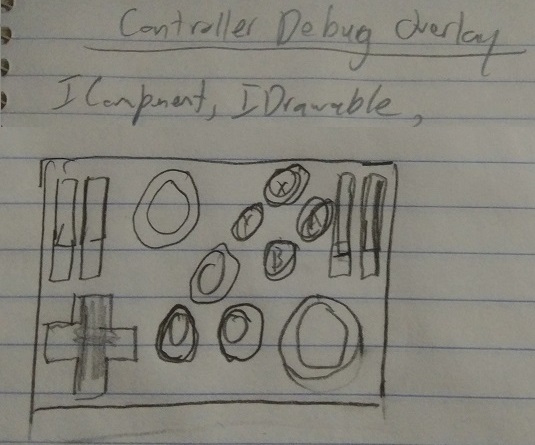 Controller Debug Overlay
IComponent, IDrawable,
X
Y A
B